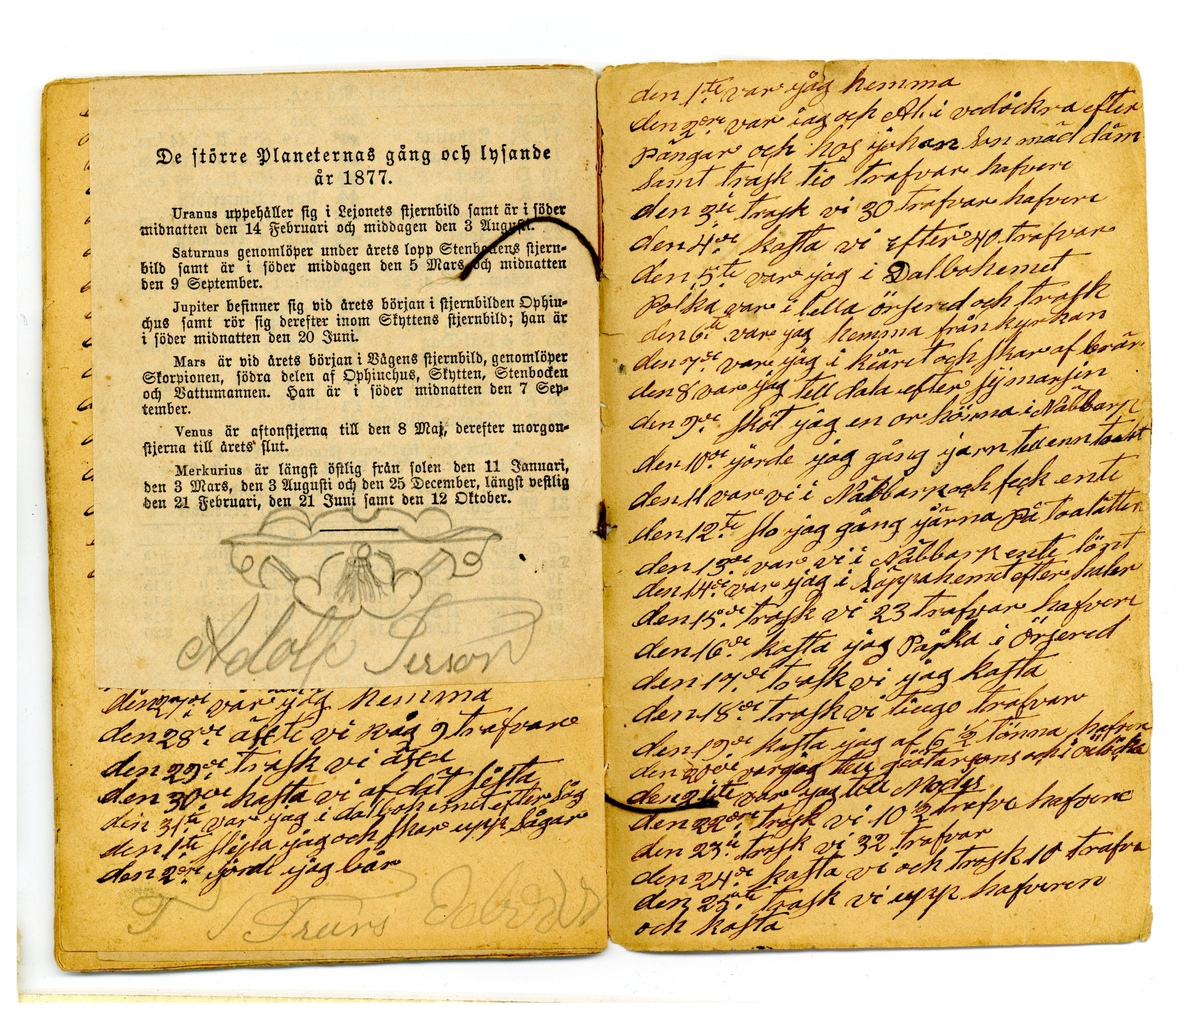 De större Planeternas gång och lysande
år 1877.
Uranus uppehåller sig i Lejonets stjernbild samt är i söder
midnatten den 14 Februari och middagen den 3 Augusti.
Saturnus genomlöper under årets lopp Stenbockens stjern-
bild samt är i söder middagen den 5 Mars och midnatten
den 9 September.
Jupiter befinner sig vid årets början i stjernbilden Ophiu-
chus samt rör sig derefter inom Skyttens stjernbild; han är
i söder midnatten den 20 Juni.
Mars är vid årets början i Vågens stjernbild, genomlöper
Skorpionen, södra delen af Ophiuchus, Skytten, Stenbocken
och Vattumannen. Han är i söder midnatten den 7 Sep-
tember.
Venus är aftonstjerna till den 8 Maj, derefter morgon-
stjerna till årets slut.
Merkurius är längst östlig från solen den 11 Januari,
den 3 Mars, den 3 Augusti och den 25 December, längst vestlig
den 21 Februari, den 21 Juni samt den 12 Oktober.
Adolf Person
den 27de var jag hemma
den 28de åkte vi råg 9 trafvar
den 29de trask vi
den 30de kasta vi af dät sista
den 31te var jag i dalbohemet efter Sig
den 1te slejla jag och skar upp Sågar
den 2re jörde jag bår
T T Trurs
den 1te var jag hemma
den 2dre var jag och Ah i vedåckra efter
pängar och hos johan Son mäd däm
samt trask tio trafvar hafvere
den 3ie trask vi 30 trafvar hafvere
den 4de kasta vi efter 40 trafvar
den 5te var jag i Dalbohemet
Polka var i tella örsered och trask
den 6te var jag hemma från kyrkan
den 7de var jag i kiäret och skar af brär
den 8 var jag tell dala efter symasjin
den 9de sköt jag en or höina i Näbbarp
den 10de jörde jag gång järn tell enn trask
den 11 var vi i Näbbarp och feck ente
den 12te slo jag gång järna på toalätter
den 13de var vi i Näbbarp ente lönt
den 14de var jag i Säppahemet efter haler
den 15de trask vi 23 trafvar hafvere
den 16de kasta jag Påjka i Örsered
den 17de trask vi jag kasta
den 18de trask vi tiugo trafvar
den 19de kasta jag af 6 1/2 tönna hafren
den 20de var jag tell
den 21te var jag tell Modys
den 22dre trask vi 10 1/2 trafve hafvere
den 23ie trask vi 32 trafvar
den 24de kasta vi och trask 10 trafva
den 25te trask vi upp hafveren
och kasta